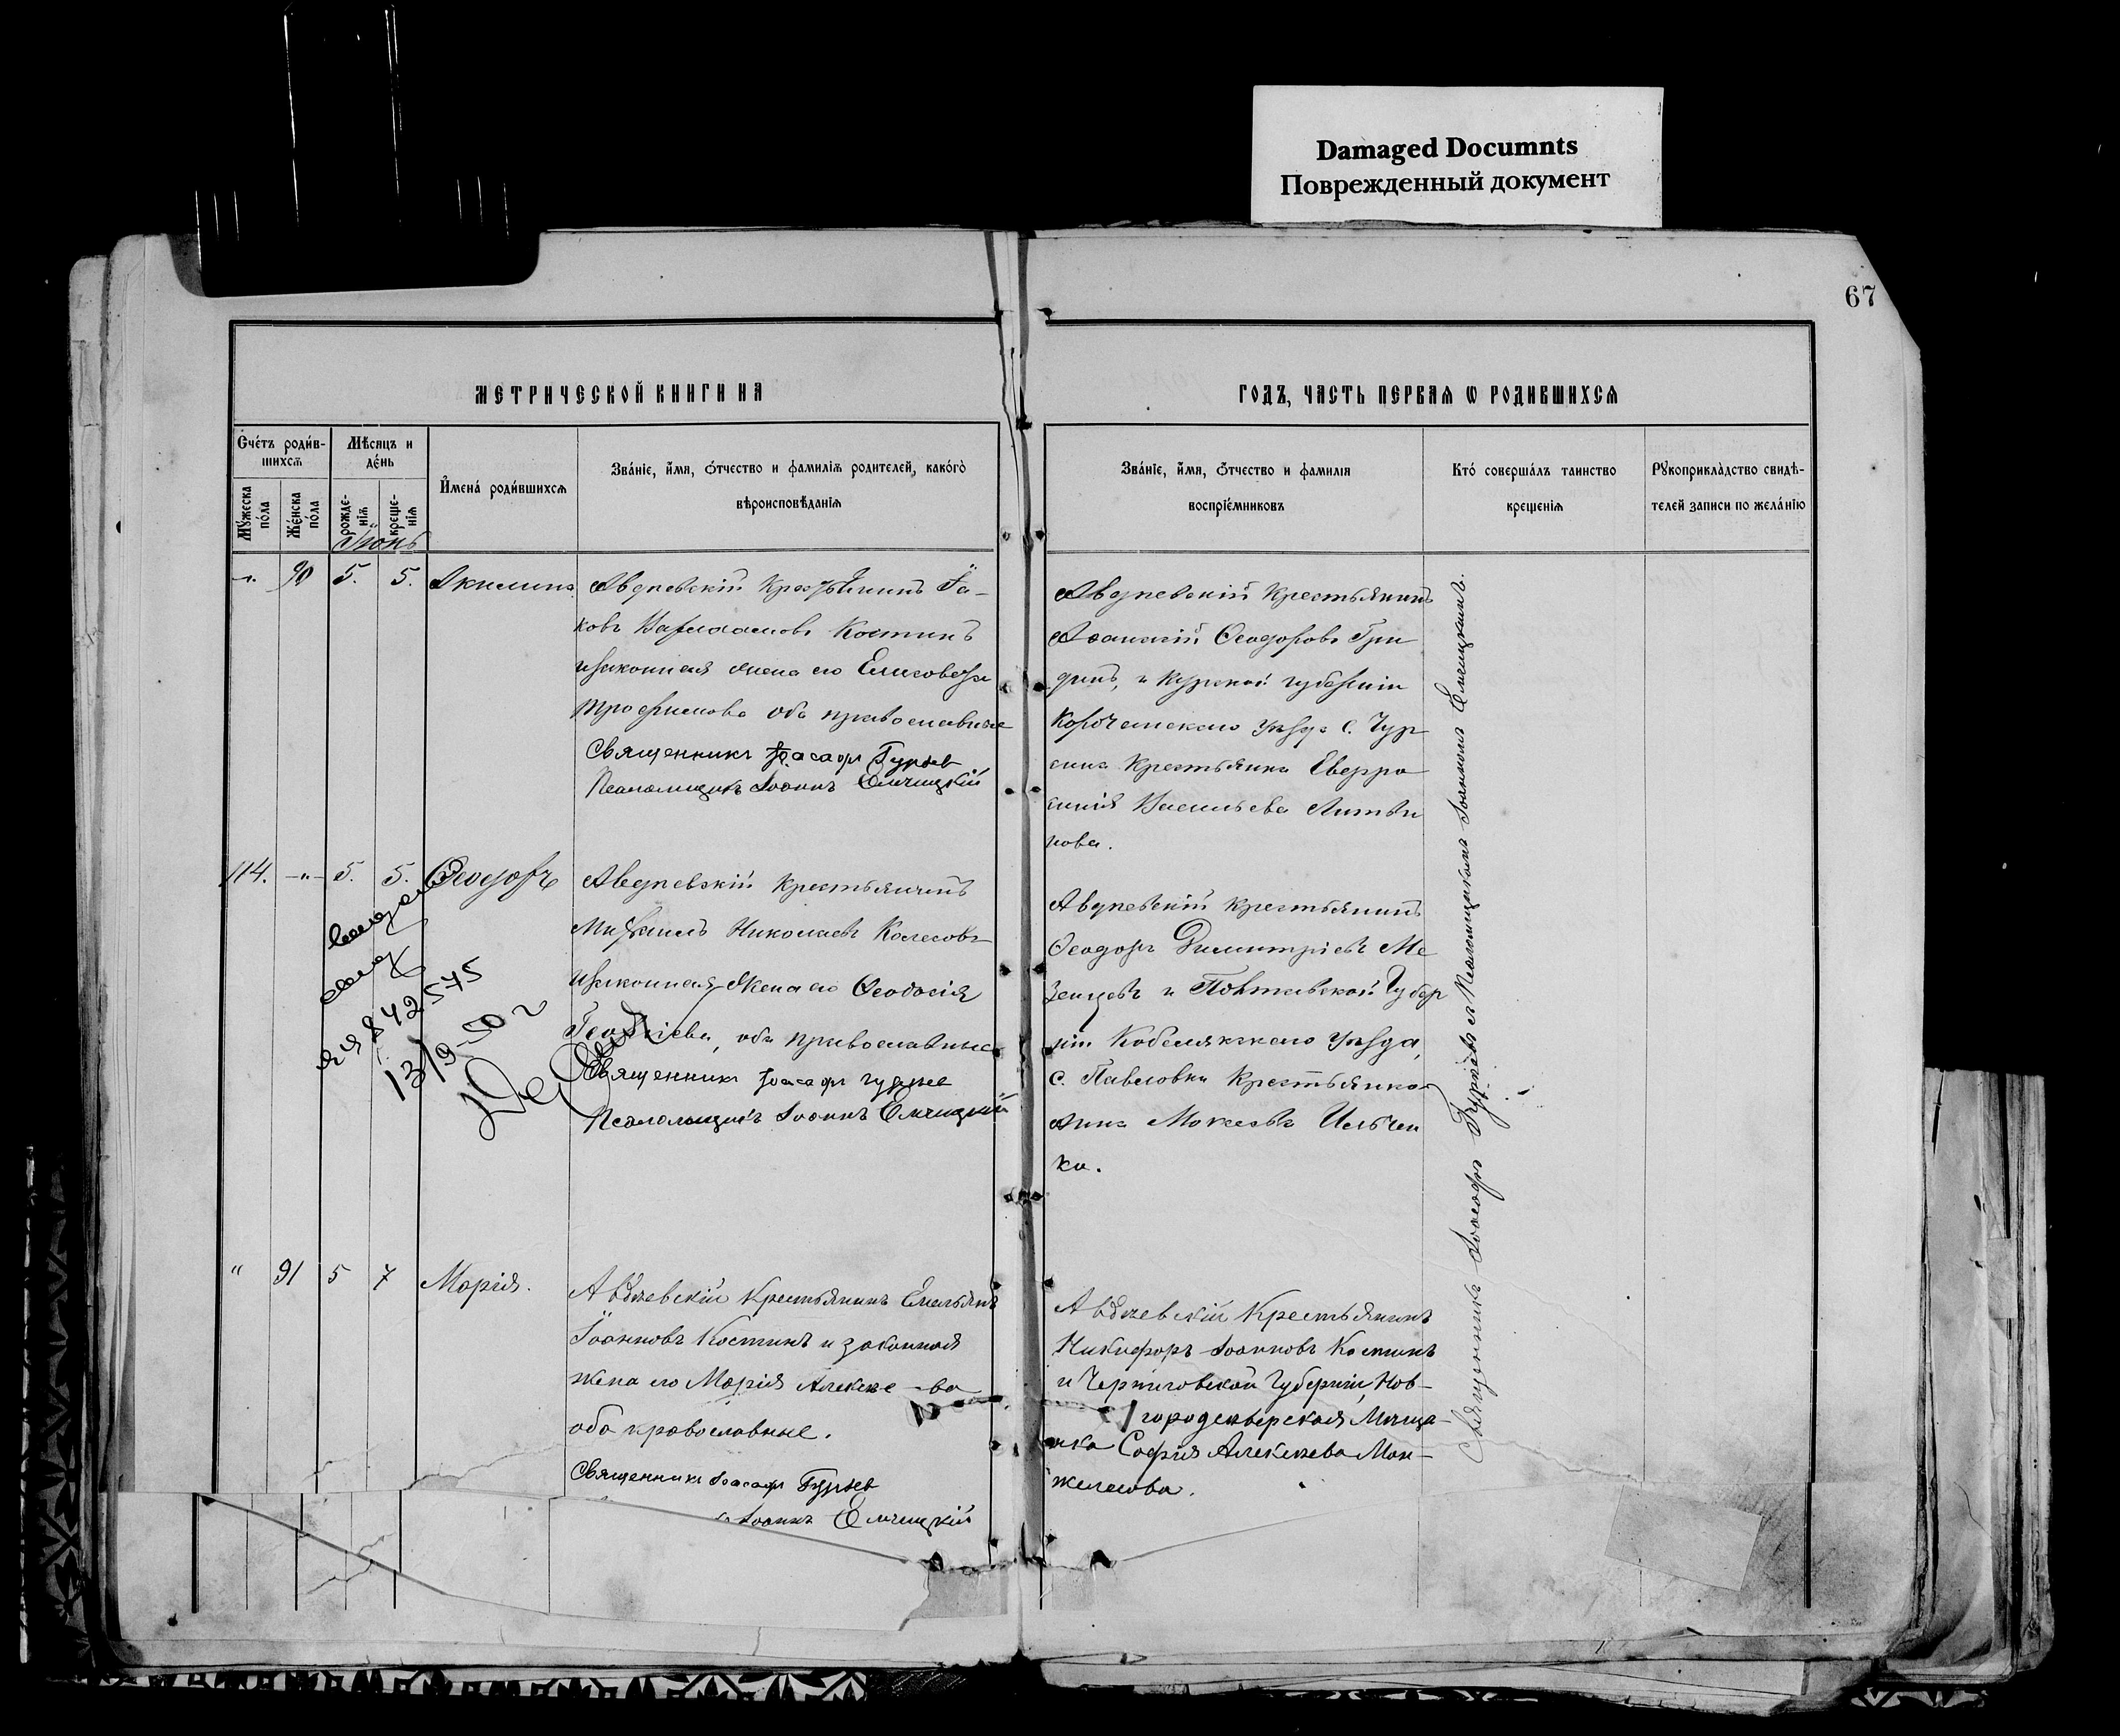 Damaged Documnts
Поврежденный документ
67
МЕТРИЧЕСКОЙ КНИГИ НА
ГОДЪ, ЧАСТЬ ПЕРВАЯ Ѡ РОДИВШИХСЯ
Счетъ родив-
шихся
Мѣсяцъ и
день
Мужеска
пола
Женска
пола
рожде-
нія
креще-
нія
Имена родившихся
Званіе, имя, отчество и фамилія родителей, какого
вѣроисповѣданія
Званіе, имя, отчество и фамилія
воспріемниковъ
Кто совершалъ таинство
крещенія
Рукоприкладство свидѣ-
телей записи по желанію
Іюнь
-"- 90 5. 5. Акилина
Авдѣевскій Крестьянинъ Іа-
ковъ Варлаамовъ Костинъ
и законная жена его Елисавета
Трофимова оба православные
Священникъ Іоасафъ Гурьев
Псаломщикъ Іоаннъ Емчицкій
Авдѣевскій Крестьянинъ
Аѳанасій Ѳеодоровъ Гри
динъ, и Курской губерніи
Корочанскаго уѣзда с.
Крестьянка Евфро
синія Васильева Литви
нова.
114. -"- 5. 5. Ѳеодоръ
Авдѣевскій крестьянинъ
Михаилъ Николаевъ Колесовъ
и законная жена его Ѳеодосія
Георгіева, оба православные
Священникъ Іоасафъ Гурьев
Псаломщикъ Іоаннъ Емчицкій
Авдѣевскій крестьянинъ
Ѳеодоръ Димитріевъ Ме
зенцевъ и Полтавской Губер
ніи Кобелякскаго уѣзда,
с. Павловки Крестьянка
Анна Мокеева Ильчен
ко.
яя 842575
13/9-50 г
" 91 5 7 Марія.
Авдѣевскій Крестьянинъ Емельянъ
Іоанновъ Костинъ и законная
жена его Марія Алексѣе-ва
оба православные.
Священникъ Іоасафъ Гурьев
Іоаннъ Емчицкій
Авдѣевскій Крестьянинъ
Никифоръ Іоанновъ Костинъ
и Черниговской Губерніи, Нов-
городсѣверская Мѣща-
нка Софія Алексѣева Ман-
желесова.
Священникъ Іоасафъ Гурьевъ и Псаломщикъ Іоаннъ Емчицкимъ.